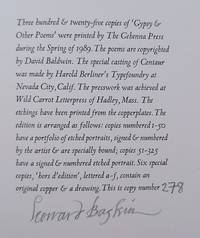 Three hundred & twenty-five copies of 'Gypsy &
Other Poems' were printed by The Gehenna Press
during the Spring of 1989. The poems are copyrighted
by David Baldwin. The special casting of Centaur
was made by Harold Berliner's Typefoundry at
Nevada City, Calif. The presswork was achieved at
Wild Carrot Letterpress of Hadley, Mass. The
etchings have been printed from the copperplates. The
edition is arranged as follows: copies numbered 1-50
have a portfolio of etched portraits, signed & numbered
by the artist & are specially bound; copies 51-325
have a signed & numbered etched portrait. Six special
copies, 'hors d'edition', lettered a-f, contain an
original copper & a drawing. This is copy number 278
Leonard Baskin